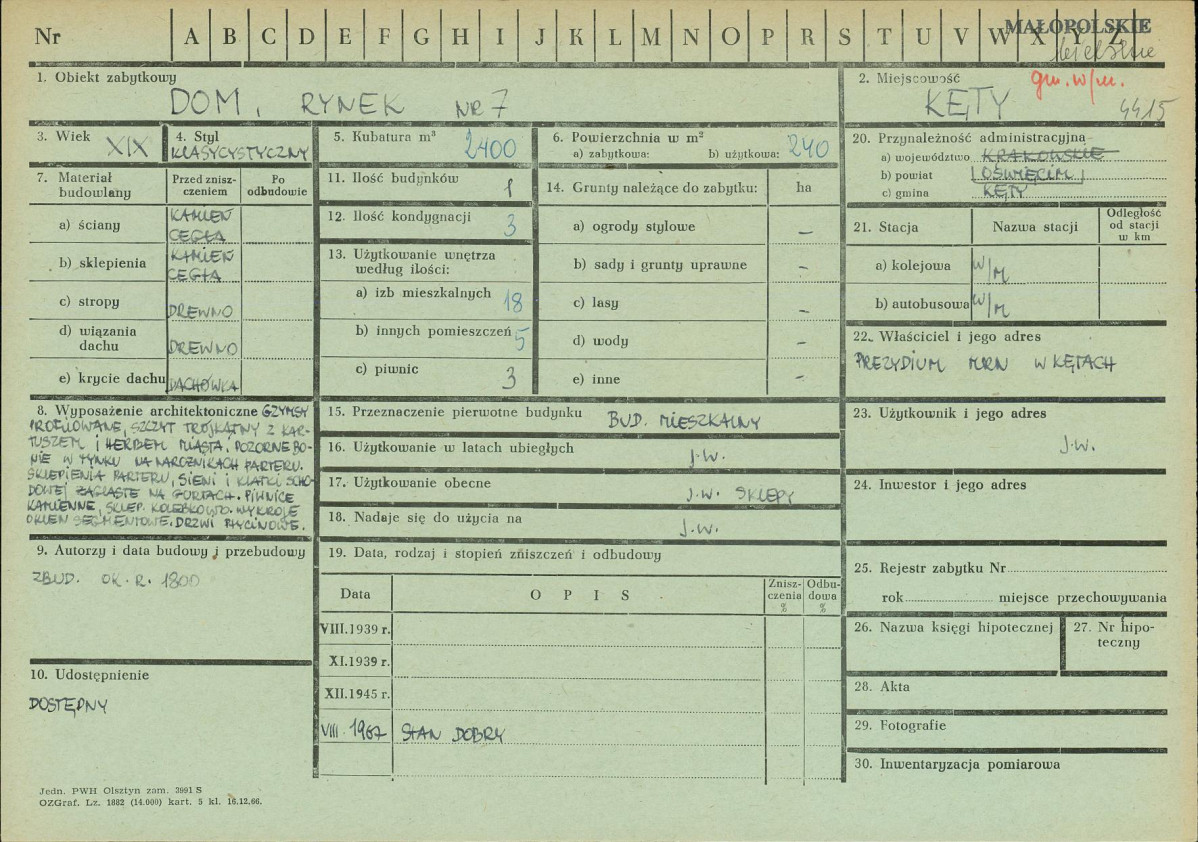 MAŁOPOLSKIE
bielskie
Nr A B C D E F G H I J K L M N O P R S T U V W X Y Z
1. Obiekt zabytkowy
DOM, RYNEK NR 7
2. Miejscowość
gm. w/m.
KĘTY
4415
3. Wiek
XIX
4. Styl
KLASYCYSTYCZNY
5. Kubatura m³
2400
6. Powierzchnia w m²
a) zabytkowa: b) użytkowa: 240
20. Przynależność administracyjna
a) województwo KRAKOWSKIE
b) powiat OŚWIĘCIM
c) gmina KĘTY
7. Materiał budowlany
Przed zniszczeniem
Po odbudowie
a) ściany KAMIEŃ CEGŁA
b) sklepienia KAMIEŃ CEGŁA
c) stropy DREWNO
d) wiązania dachu DREWNO
e) krycie dachu DACHÓWKA
11. Ilość budynków 1
12. Ilość kondygnacji 3
13. Użytkowanie wnętrza według ilości:
a) izb mieszkalnych 18
b) innych pomieszczeń 5
c) piwnic 3
14. Grunty należące do zabytku: ha
a) ogrody stylowe –
b) sady i grunty uprawne –
c) lasy –
d) wody –
e) inne –
21. Stacja Nazwa stacji Odległość od stacji w km
a) kolejowa W/M
b) autobusowa W/M
22. Właściciel i jego adres
PREZYDIUM MRN W KĘTACH
8. Wyposażenie architektoniczne GZYMSY
PROFILOWANE, SZCZYT TRÓJKĄTNY Z KAR-
TUSZEM I HERBEM MIASTA. POZORNE BO-
NIE W TYNKU NA NAROŻNIKACH PARTERU.
SKLEPIENIA PARTERU, SIENI I KLATKI SCHO-
DOWEJ ŻAGLASTE NA GURTACH. PIWNICE
KAMIENNE, SKLEP. KOLEBKOWO. WYKROJE
OKIEN SEGMENTOWE. DRZWI PŁYCINOWE.
15. Przeznaczenie pierwotne budynku BUD. MIESZKALNY
16. Użytkowanie w latach ubiegłych J.W.
17. Użytkowanie obecne J.W. SKLEPY
18. Nadaje się do użycia na J.W.
23. Użytkownik i jego adres
J.W.
24. Inwestor i jego adres
9. Autorzy i data budowy i przebudowy
ZBUD. OK. R. 1800
19. Data, rodzaj i stopień zniszczeń i odbudowy
Data O P I S Zniszczenia % Odbudowa %
VIII.1939 r.
XI.1939 r.
XII.1945 r.
VIII. 1967 STAN DOBRY
25. Rejestr zabytku Nr
rok miejsce przechowywania
26. Nazwa księgi hipotecznej
27. Nr hipoteczny
10. Udostępnienie
DOSTĘPNY
28. Akta
29. Fotografie
30. Inwentaryzacja pomiarowa
Jedn. PWH Olsztyn zam. 3991 S
OZGraf. Lz. 1882 (14.000) kart. 5 kl. 16.12.66.